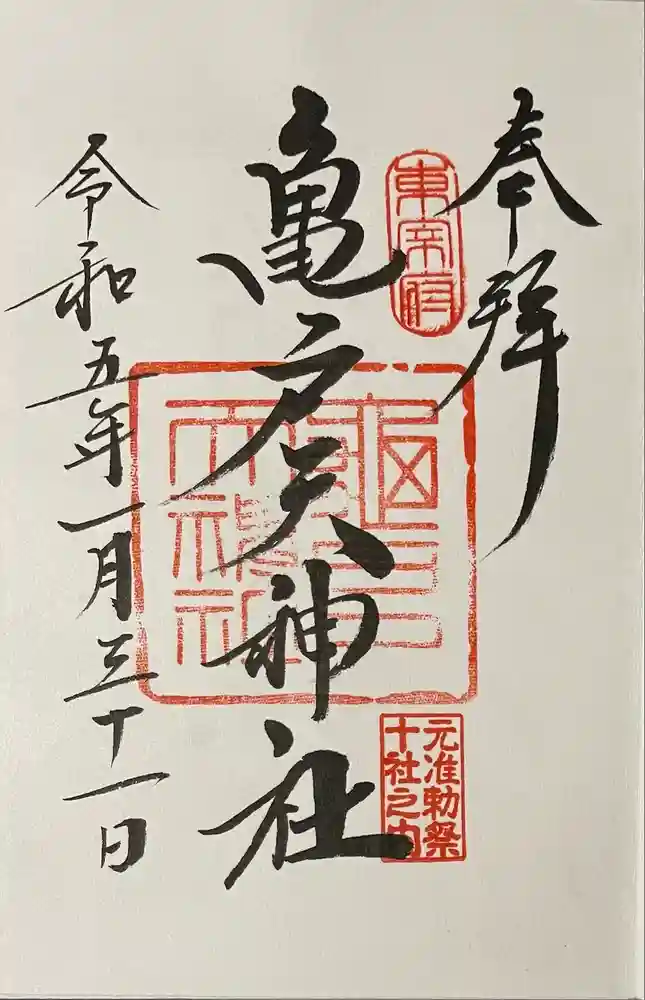 奉拝
東宰府
亀戸天神社
元准勅祭
十社之内
令和五年一月三十一日